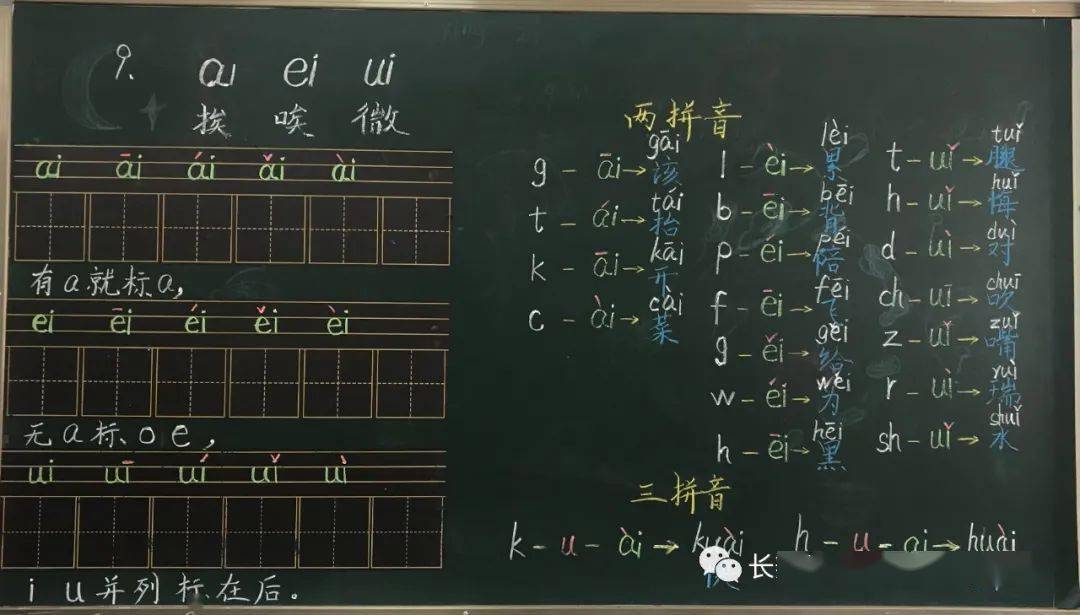 9. ai ei ui
挨 唉 微
ai āi ái ǎi ài
有a就标a,
ei ēi éi ěi èi
无a标o e,
ui uī uí uǐ uì
i u并列标在后。
两拼音
g - āi → gāi 该
t - ái → tái 抬
k - āi → kāi 开
c - ài → cài 菜
l - èi → lèi 累
b - ēi → bēi 背
p - éi → péi 陪
f - ēi → fēi 飞
g - ěi → gěi 给
w - éi → wéi 为
h - ēi → hēi 黑
t - uǐ → tuǐ 腿
h - uǐ → huǐ 悔
d - uì → duì 对
ch - uī → chuī 吹
z - uǐ → zuǐ 嘴
r - uì → ruì 瑞
sh - uǐ → shuǐ 水
三拼音
k - u - ài → kuài
h - u - ai → huài
长